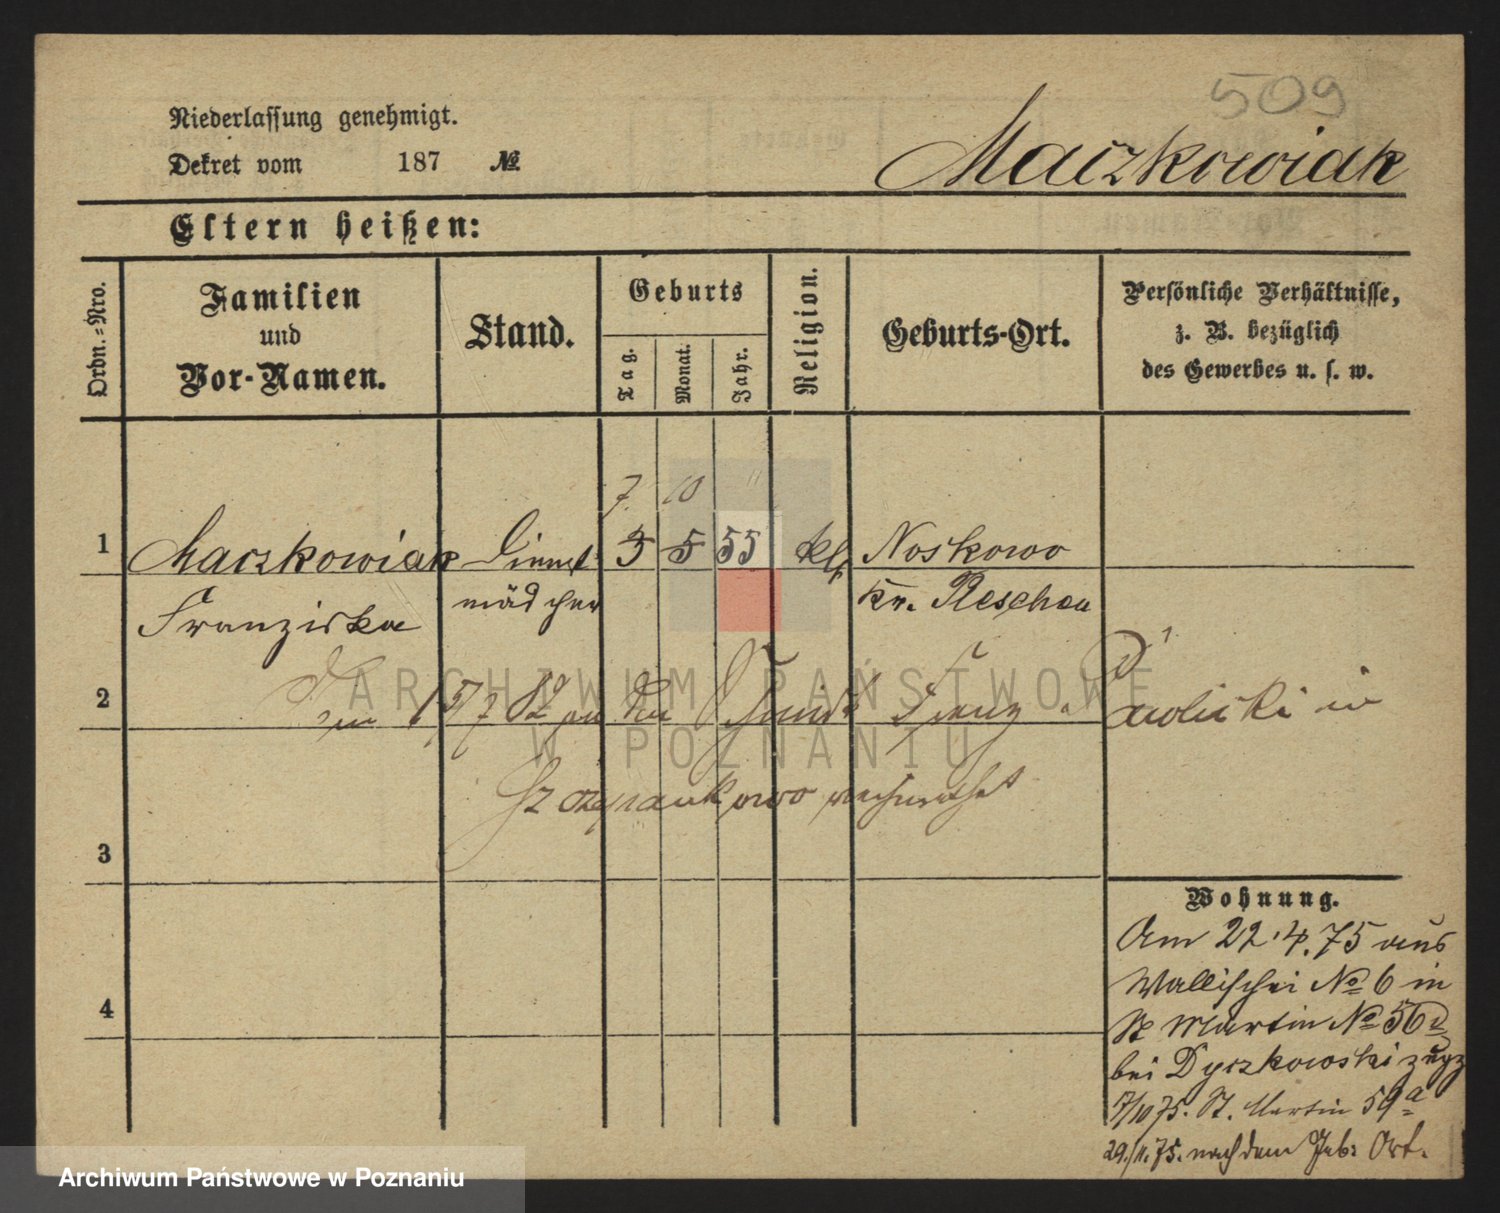 509
Niederlassung genehmigt.
Dekret vom 187 №
Maczkowiak
Eltern heißen:
Ordn.-Nro.
Familien
und
Vor-Namen.
Stand.
Geburts
Tag.
Monat.
Jahr.
Religion.
Geburts-Ort.
Persönliche Verhältnisse,
z. B. bezüglich
des Gewerbes u. s. w.
7. 10 "
1 Maczkowiak Dienst 3 5 55 kth Noskowo
Franziska mädchen Kr. Pleschen
2 Franz Pawlicki in
ARCHIWUM PAŃSTWOWE
W POZNANIU
Szczepankowo verheirathet
3
4
Wohnung.
Am 22.4.75 aus
Wallischei No 6 in
St Martin No 56
bei Dyszkowski zugz
7/10 75. St. Martin 59a
29./11.75. nach dem Geb: Ort.
Archiwum Państwowe w Poznaniu